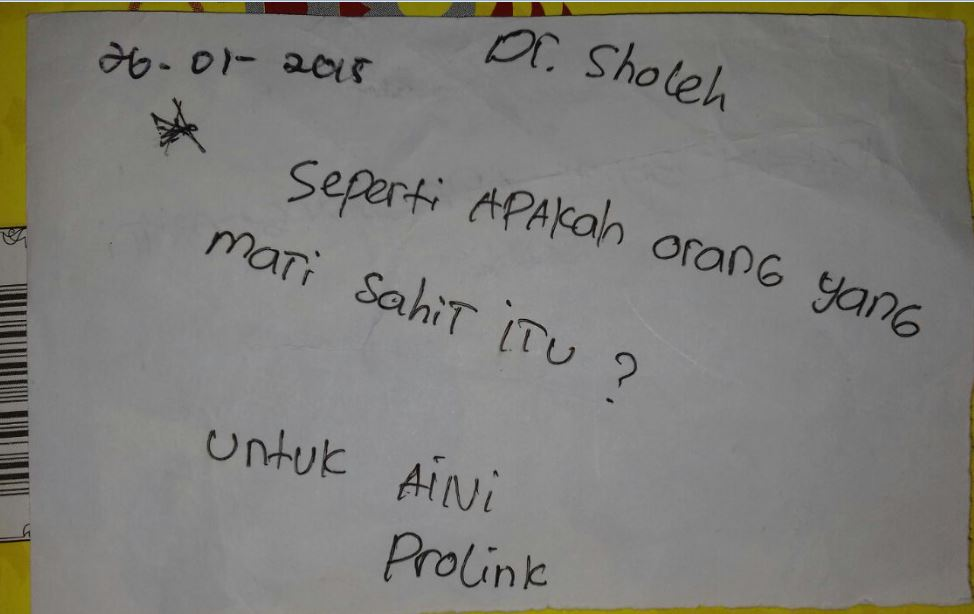 26-01-2015 Dr. Sholeh
Seperti APAkah orang yang
mati sahit itu ?
untuk AiNi
Prolink